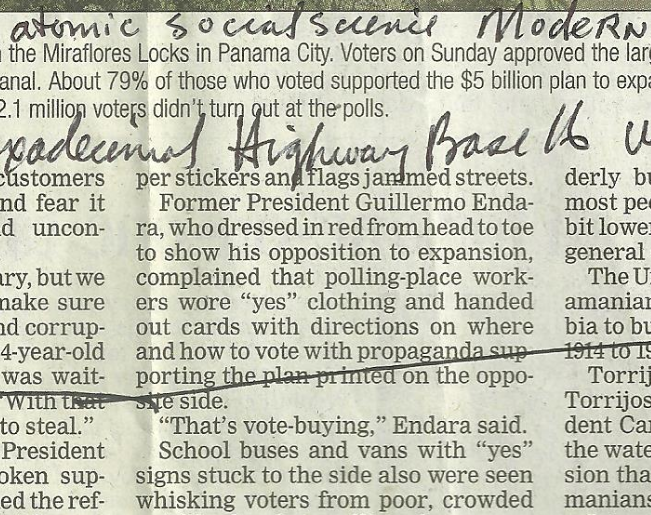 atomic Social Science Modern
the Miraflores Locks in Panama City. Voters on Sunday approved the
anal. About 79% of those who voted supported the $5 billion plan to
2.1 million voters didn't turn out at the polls.
Highway Base 16
customers
nd fear it
uncon-
ary, but we
make sure
nd corrup-
4-year-old
was wait-
With that
to steal."
President
oken sup-
ed the ref-
per stickers and flags jammed streets.
Former President Guillermo Enda-
ra, who dressed in red from head to toe
to show his opposition to expansion,
complained that polling-place work-
ers wore "yes" clothing and handed
out cards with directions on where
and how to vote with propaganda sup-
porting the plan printed on the oppo-
site side.
"That's vote-buying," Endara said.
School buses and vans with "yes"
signs stuck to the side also were seen
whisking voters from poor, crowded
derly
most
bit lower
general
The
amanian
bia to
1914 to
Torrij
Torrijos
dent
the wate
sion tha
manians